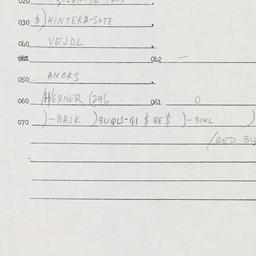 020
030 $)HINTER2-S+TE
040 VEJDL
041 042 —
050 ANOKS
060 /H/ERNER (296 061 0
070 )-BAJK )BUQLS-QI $ QE$ )-BIKL )
/QED BU